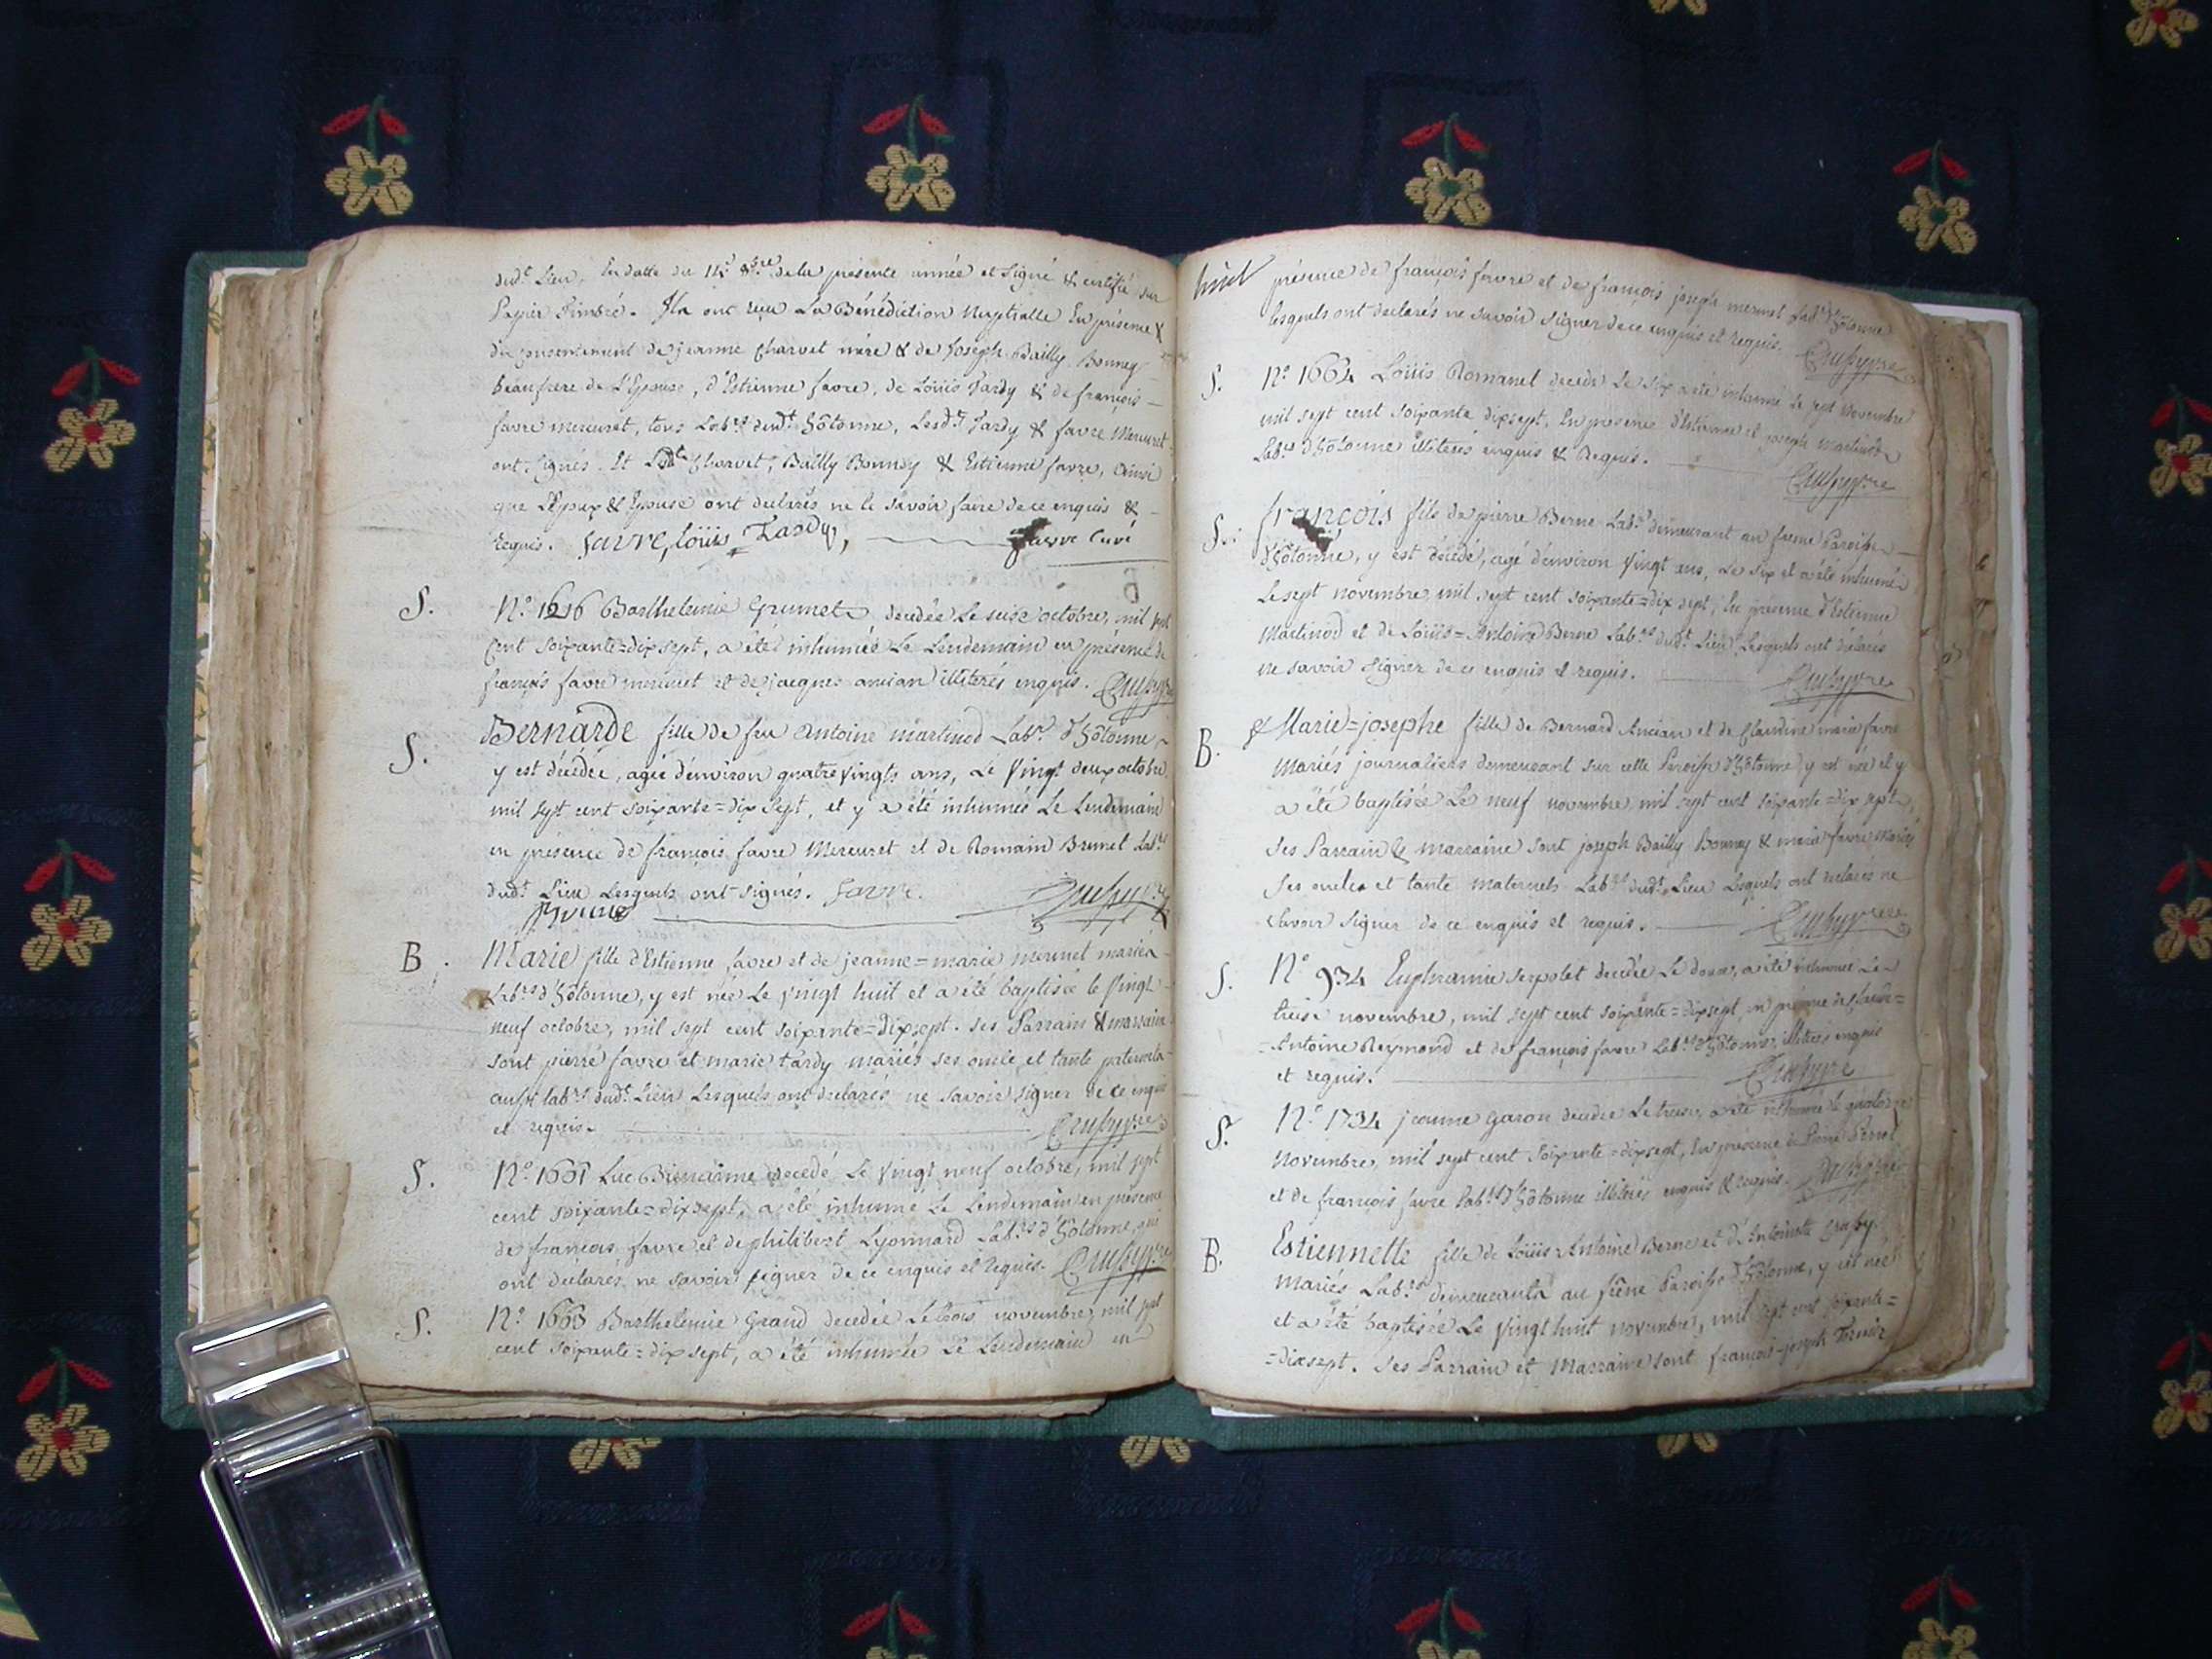 dudt Lieu, En datte du 14e 8bre de la présente année et signé & certifié sur
Papier Timbré. Ils ont reçu La Bénédiction Nuptialle En présence &
du consentement de jeanne Charvet mère & de Joseph Bailly Bonney
beaufrere de L'Epouse, d'Estienne favre, de Loüis Tardy & de françois
favre mercuret, tous Labrs dudt hôtonne, Lesdts Tardy & favre Mercuret
ont signés. Et Charvet, Bailly Bonney & Estienne favre, ainsi
que L'Epoux & Epouse ont declarés ne le savoir faire de ce enquis &
Requis. favre, loüis Tardy, favre Curé
S. No. 1646 Barthelemie Grumet decedée Le seize octobre, mil sept
cent soixante=dix sept, a été inhumée Le Lendemain en présence de
françois favre mercuret et de jacques ancian illiterés enquis.
S. Bernarde fille de feu Antoine martinod Labr. d'hôtonne
y est décédée, agée d'environ quatre vingts ans, Le Vingt deux octobre
mil sept cent soixante=dix sept, et y a été inhumée Le Lendemain
en présence de françois favre Mercuret et de Romain Brunet Labrs
dudt Lieu Lesquels ont signés. favre.
B. Marie fille d'Estienne favre et de jeanne=marie mermet mariés
Labrs d'hôtonne, y est née Le Vingt huit et a été baptisée le Vingt
neuf octobre, mil sept cent soixante=dix sept. ses Parrain & marraine
sont pierre favre et marie tardy mariés ses oncle et tante paternels
aussi labrs dudt Lieu Lesquels ont declarés ne savoir signer de ce enquis
et requis.
S. No. 1661 Luc Bienaimé decedé Le Vingt neuf octobre, mil sept
cent soixante=dix sept, a été inhumé Le Lendemain en présence
de françois favre et de philibert Lyonnard Labrs d'hôtonne, qui
ont declarés ne savoir signer de ce enquis et Requis.
S. No. 1663 Barthelemie Grand decedée Le trois novembre, mil sept
cent soixante=dix sept, a été inhumée Le Lendemain en
présence de françois favre et de françois joseph mermet Labrs d'hôtonne
lesquels ont declarés ne savoir signer de ce enquis et requis.
S. No. 1664 Loüis Romanet decedé Le six a été inhumé Le sept Novembre
mil sept cent soixante dix sept, En présence d'Estienne et joseph martinod
Labrs d'hôtonne illiterés enquis & Requis.
S. françois fils de pierre Berne Labr. demeurant au frene Paroisse
d'hôtonne, y est décédé, agé d'environ Vingt ans, Le six et a été inhumé
Le sept novembre, mil sept cent soixante=dix sept, En présence d'Estienne
Martinod et de Loüis=Antoine Berne Labrs dudt Lieu Lesquels ont declarés
ne savoir signer de ce enquis et requis.
B. Marie=josephe fille de Bernard Ancian et de Claudine marie favre
Mariés journaliers demeurant sur cette Paroisse d'hôtonne, y est née et y
a été baptisée Le neuf novembre, mil sept cent soixante=dix sept,
ses Parrain & marraine sont joseph Bailly Bonney & marie favre Mariés
ses oncle et tante maternels Labrs dudt Lieu Lesquels ont declarés ne
savoir signer de ce enquis et requis.
S. No. 934 Euphramie serpolet decedée Le douze, a été inhumée Le
treize novembre, mil sept cent soixante=dix sept, en présence de Claude=
=Antoine Reymond et de françois favre Labrs d'hôtonne, illiterés enquis
et requis.
S. No. 1734 jeanne garon decedée Le treize, a été inhumée le quatorze
Novembre, mil sept cent Soixante=dix sept, En présence de Pierre
et de françois favre Labrs d'hôtonne illiterés enquis & requis.
B. Estiennette fille de Loüis Antoine Berne et d'Antoinette
Mariés Labrs demeurants au frêne Paroisse d'hôtonne, y est née
et a été baptisée Le Vingt huit novembre, mil sept cent soixante=
=dix sept. ses Parrain et Marraine sont françois=joseph